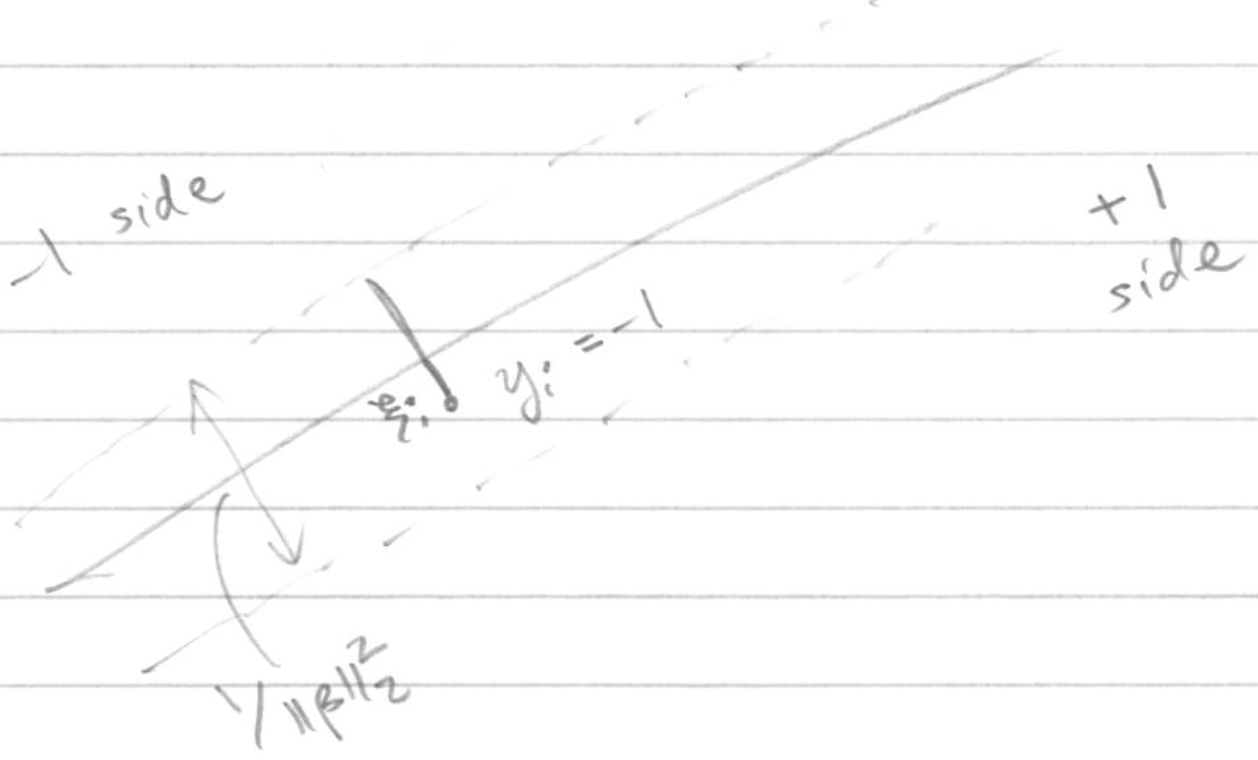 -1 side
+1
side
ξi yi = -1
1/||β||₂²